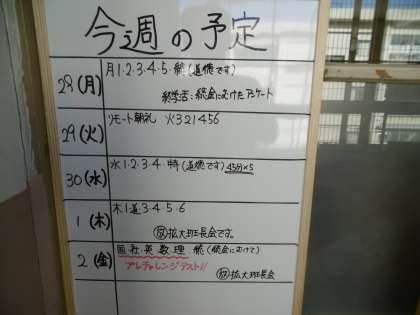 今週の予定
28(月) 月1・2・3・4・5・総(道徳です)
終学活:総会にむけたアンケート
29(火) リモート朝礼 火321456
30(水) 水1・2・3・4・特(道徳です) 45分×5
1(木) 木1道3・4・5・6
放拡大班長会です。
2(金) 国社英数理 総(総会にむけて)
プレチャレンジテスト!!
放拡大班長会